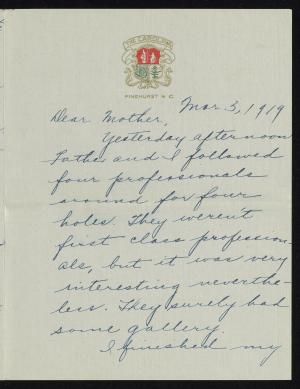 THE CAROLINA
PINEHURST N.C.
Mar. 3, 1919
Dear Mother,
Yesterday afternoon
Father and I followed
four professionals
around for four
holes. They werent
first class profession-
als, but it was very
interesting neverthe-
less. They surely had
some gallery.
I finished my